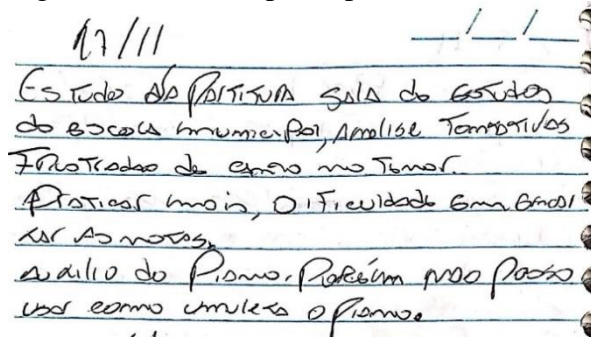 17/11 __/__/__
Estudo da Partitura sala de estudos
da escola municipal, Analise Tentativas
Frustradas de canto no Tenor.
Praticar mais, Dificuldade em emos
as notas.
auxilio do Piano. Porém não Posso
usar como muleta o piano.